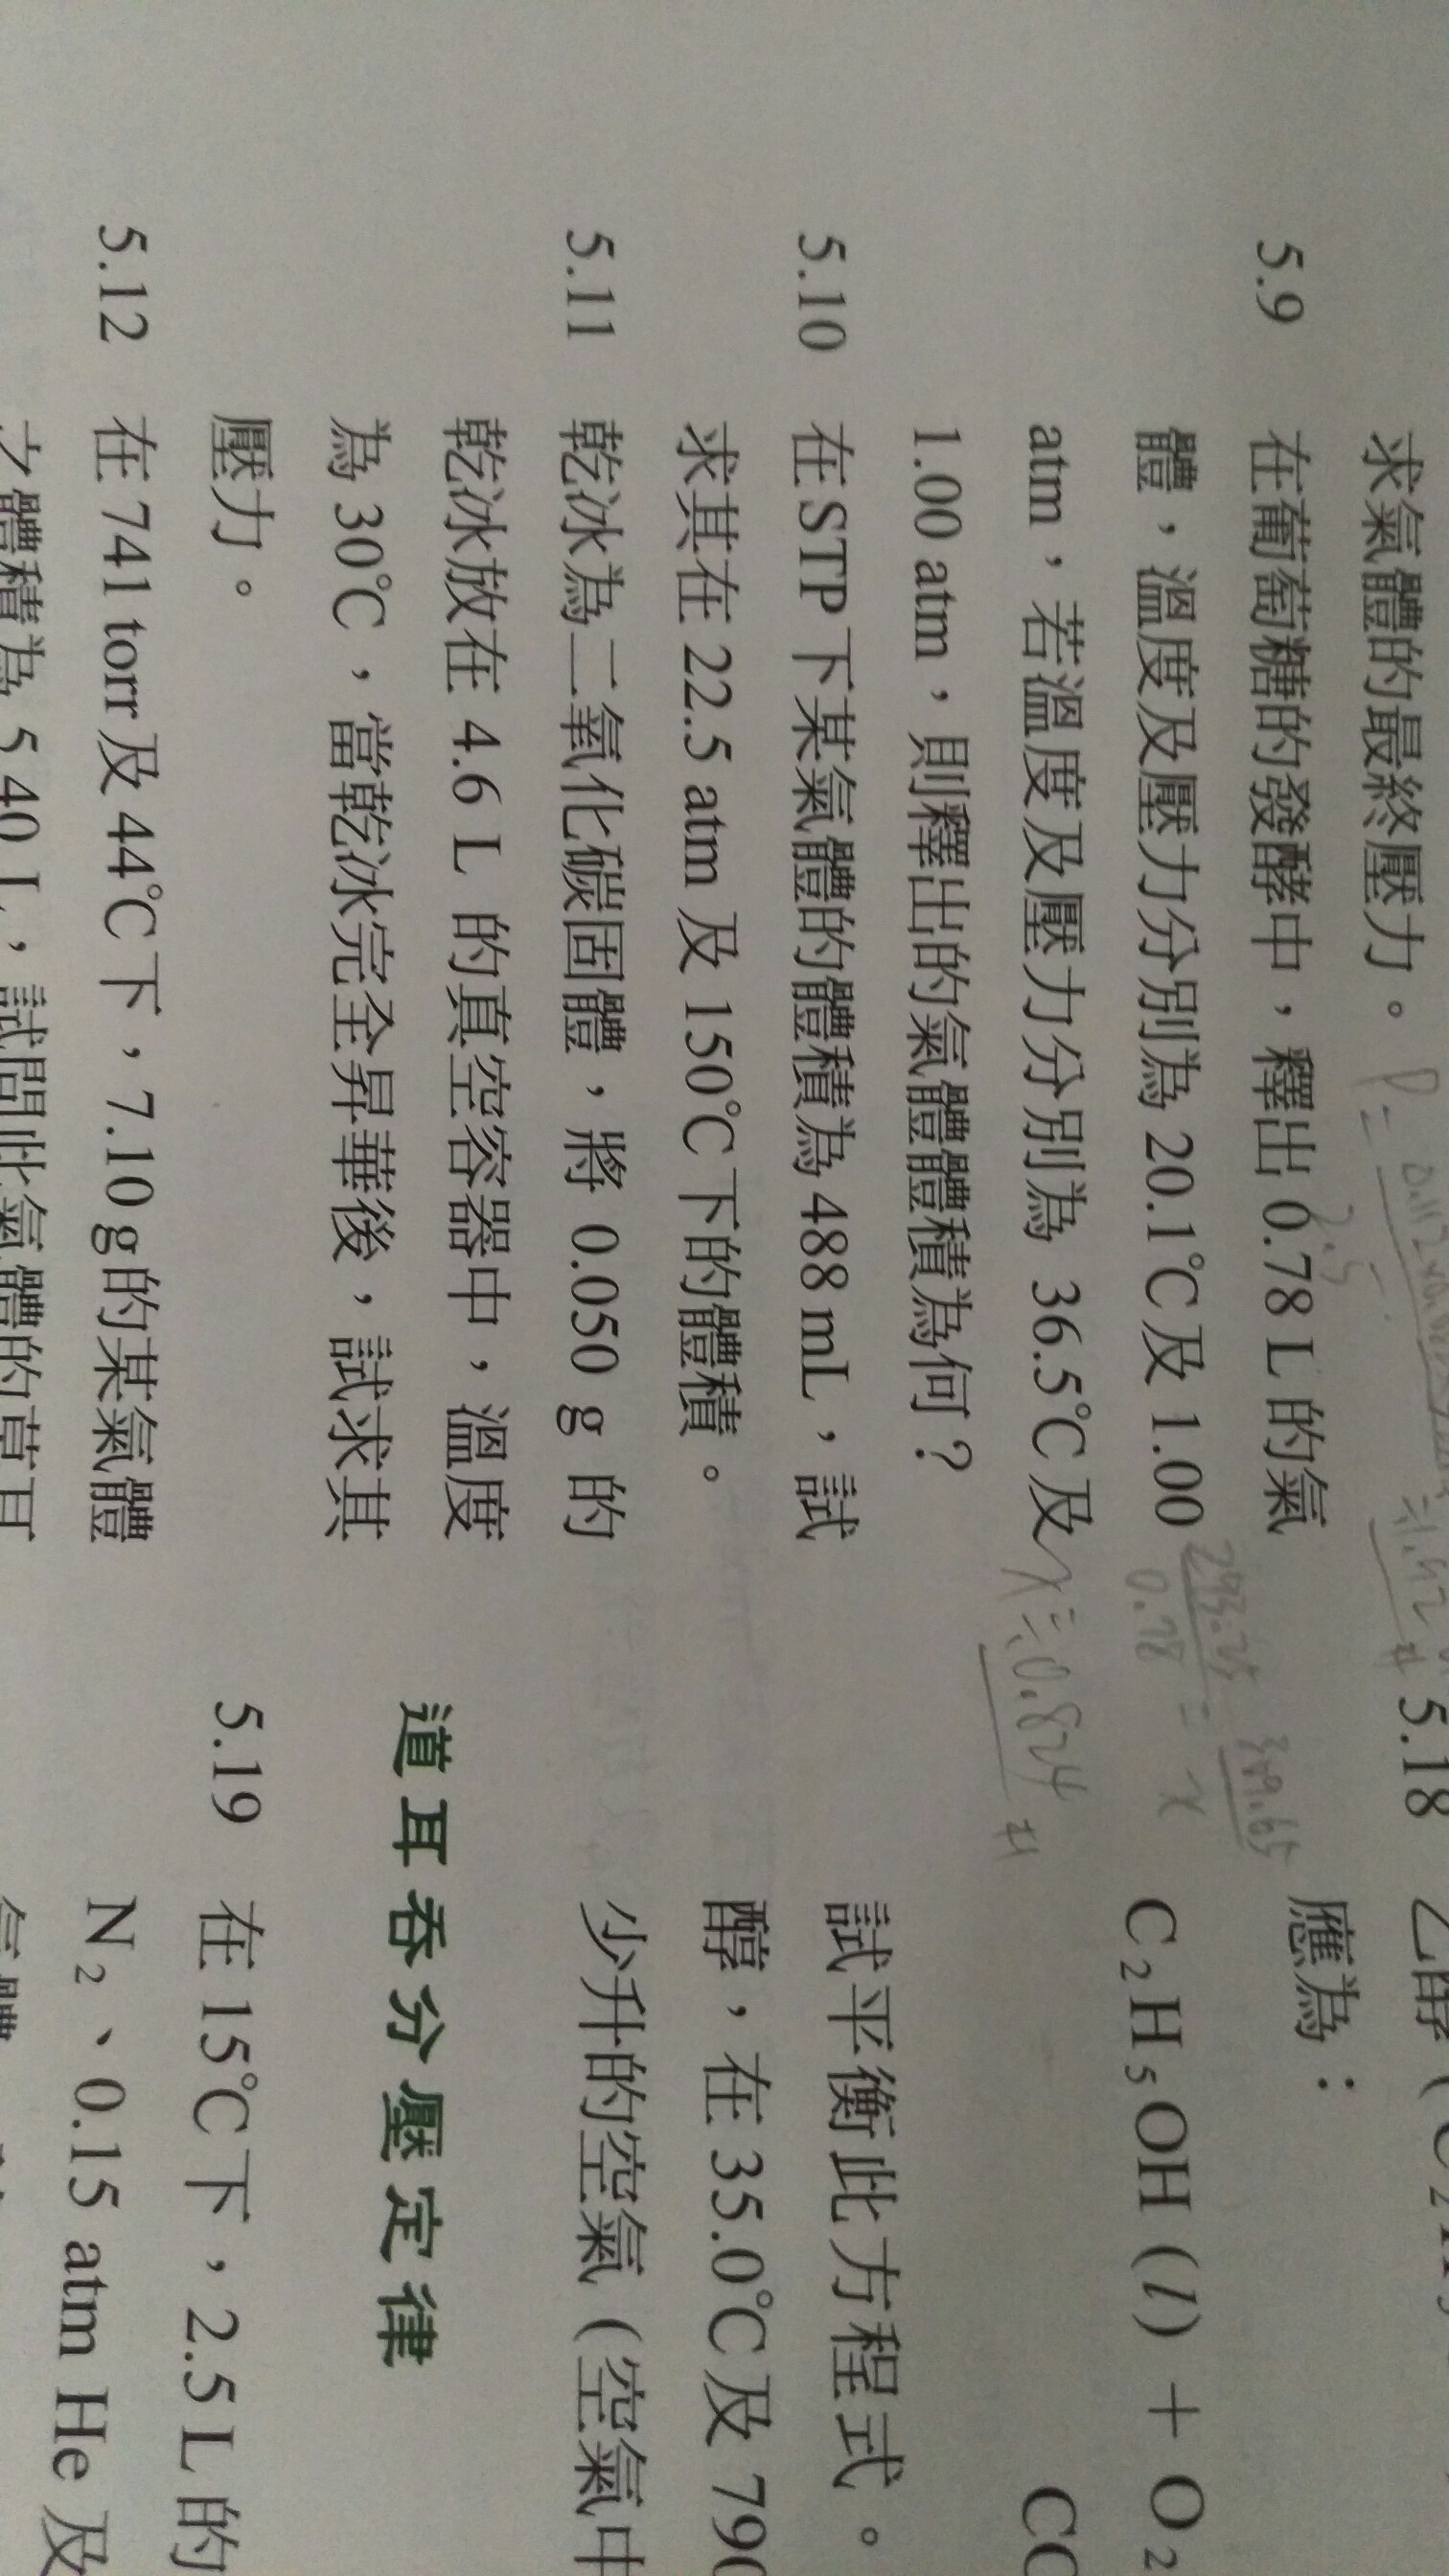 求氣體的最終壓力。
5.9 在葡萄糖的發酵中，釋出 0.78 L 的氣
體，溫度及壓力分別為 20.1℃及 1.00
atm，若溫度及壓力分別為 36.5℃及
1.00 atm，則釋出的氣體體積為何？
5.10 在 STP 下某氣體的體積為 488 mL，試
求其在 22.5 atm 及 150℃下的體積。
5.11 乾冰為二氧化碳固體，將 0.050 g 的
乾冰放在 4.6 L 的真空容器中，溫度
為 30℃，當乾冰完全昇華後，試求其
壓力。
5.12 在 741 torr 及 44℃下，7.10 g 的某氣體
之體積為 5.40 L，試問此氣體的莫耳
P =
2.5
293.25 309.65
0.78 = x
x ≒ 0.824 #
5.18 乙醇 (C₂H₅
應為：
C₂H₅OH (l) + O₂
CO
試平衡此方程式。
醇，在 35.0℃及 790
少升的空氣 (空氣中
道耳吞分壓定律
5.19 在 15℃下，2.5 L 的
N₂、0.15 atm He 及